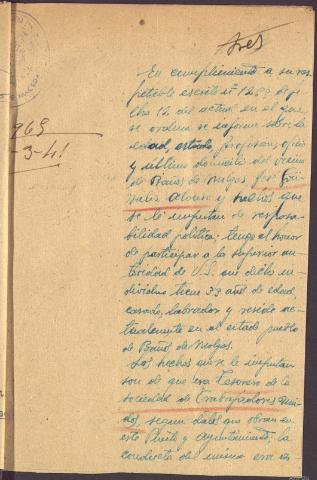 tres
En cumplimiento a su res-
petable escrito nº 1269 de fe-
cha 12 del actual en el que
se ordena se informe sobre la
edad, estado, profesion,
y ultimo domicilio del vecino
de Baños de Molgas José Gon-
zalez Alonso y hechos que
se le imputan de responsa-
bilidad politica; tengo el honor
de participar a la superior au-
toridad de V.S. que dicho in-
dividuo tiene 39 años de edad,
casado, labrador y reside ac-
tualmente en el citado pueblo
de Baños de Molgas.
Los hechos que se le imputan
son el que era Tesorero de la
Sociedad de Trabajadores uni-
dos segun datos que obran en
este Puesto y ayuntamiento; la
conducta del mismo era en-
969
-3-41